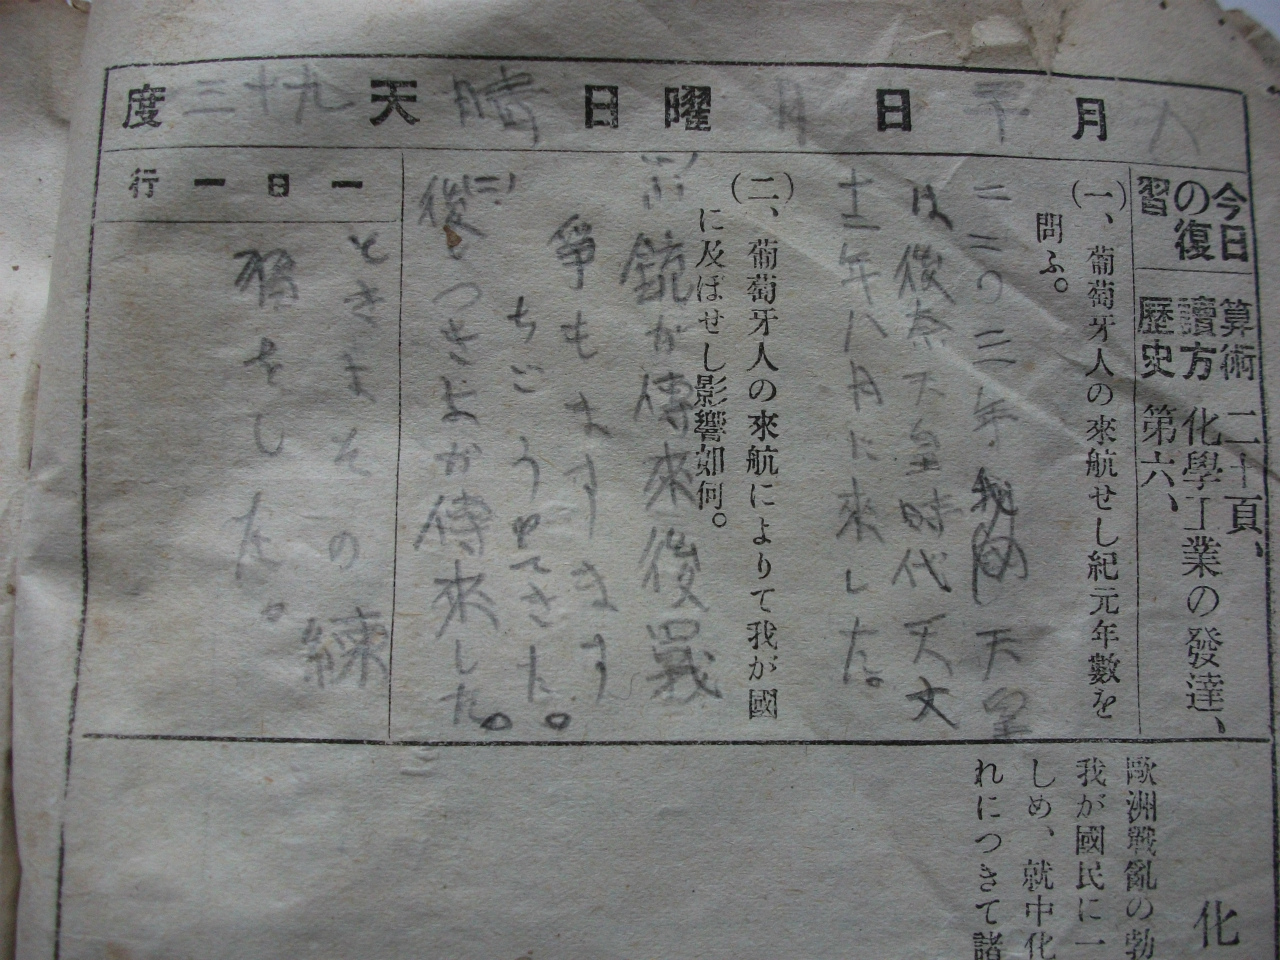 八月 日 月曜日 晴天 九十三度
今日の復習
算術 二十頁、
讀方 化學工業の發達、
歷史 第六、
(一)、葡萄牙人の來航せし紀元年數を
問ふ。
二二〇三年 天皇
は後奈天皇時代天文
十二年八月に來した。
(二)、葡萄牙人の來航によりて我が國
に及ぼせし影響如何。
銃が傳來後戰
爭もますます
ちごうてきた。
後 つきよが傳來した。
一日一行
ときまその練
習をした。
化
歐洲戰亂の勃
我が國民に一
しめ、就中化
れにつきて諸